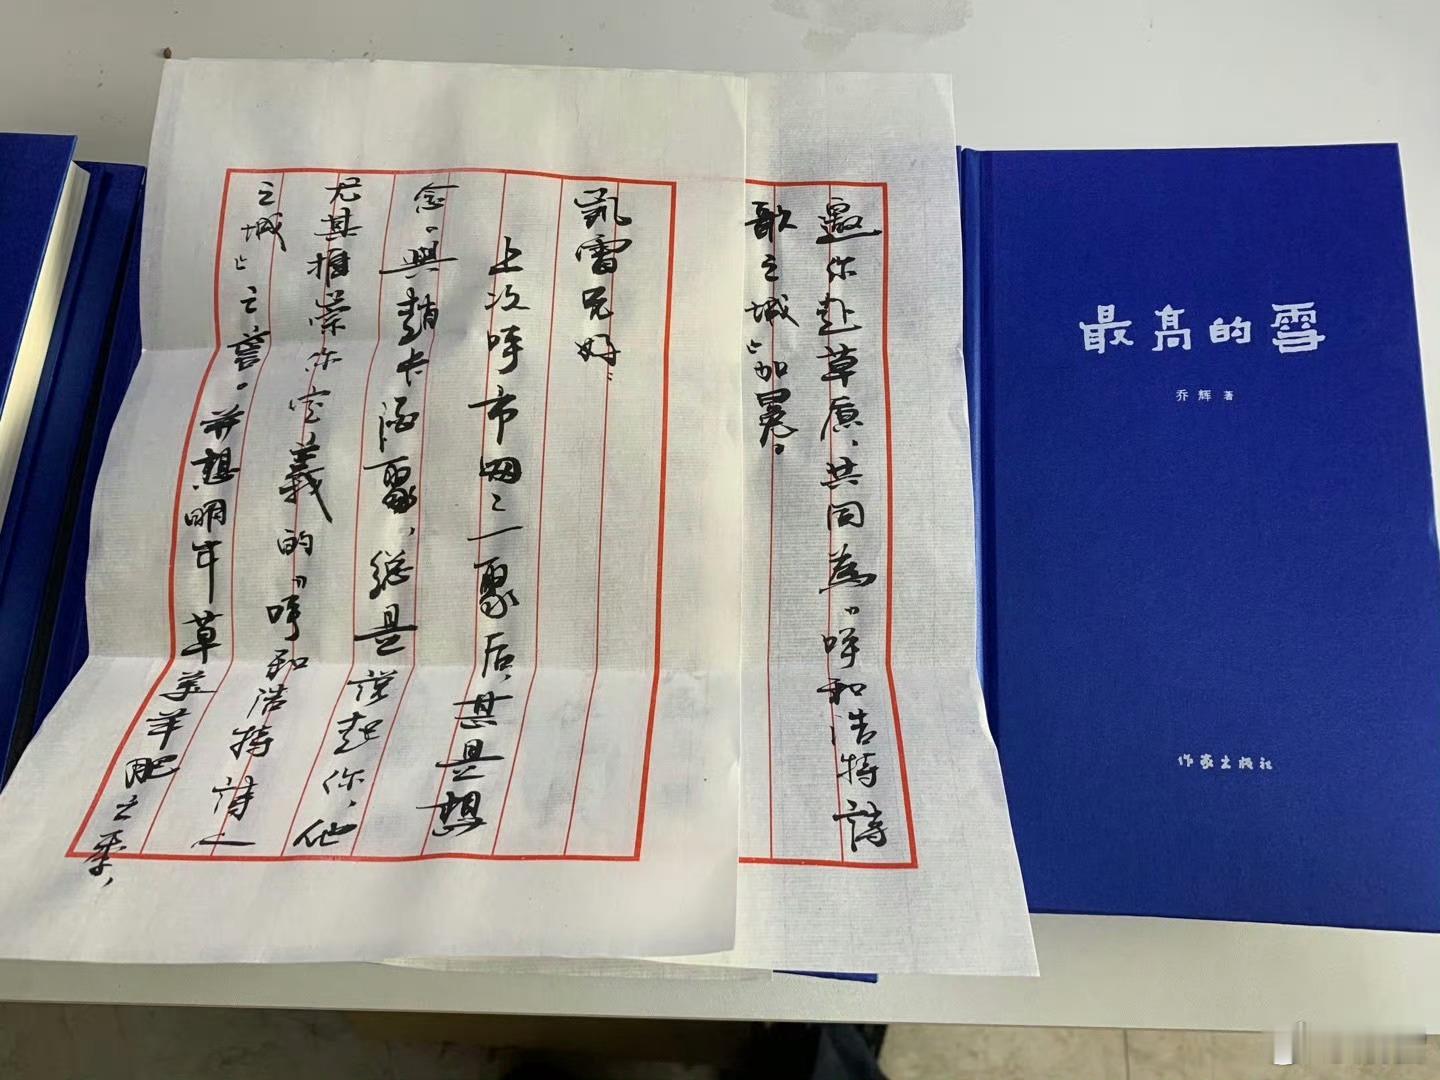 凯雷兄好：
上次呼市匆匆一聚后，甚是想
念。與趙卡酒聚，總是説起你，他
尤其推崇你定義的“呼和浩特詩人
之城”之言。并想明年草美羊肥之季，
邀你赴草原，共同為“呼和浩特詩
歌之城”加冕。
最高的雪
乔辉 著
作家出版社